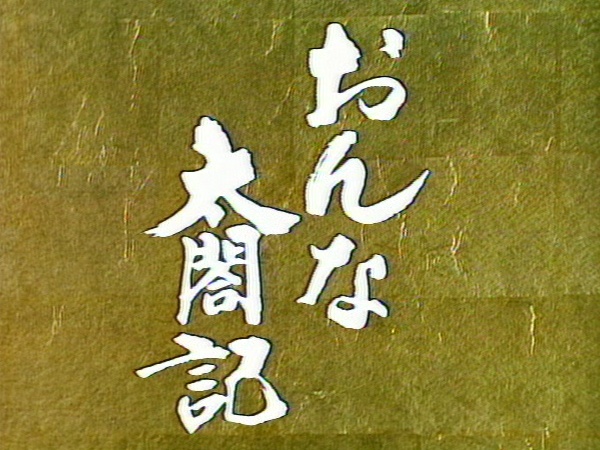 おんな
太閤記